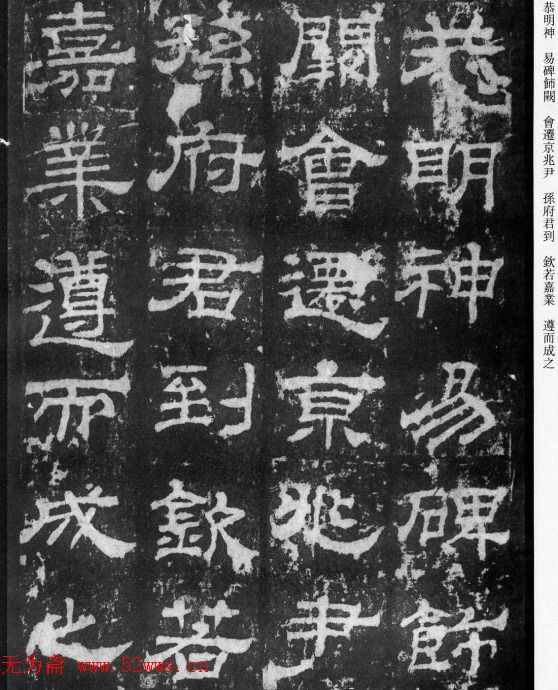 恭明神易碑飾
闕會遷京兆尹
孫府君到欽若
嘉業遵而成之
恭明神 易碑飾闕 會遷京兆尹 孫府君到 欽若嘉業 遵而成之
无为斋 www.52wwz.cn